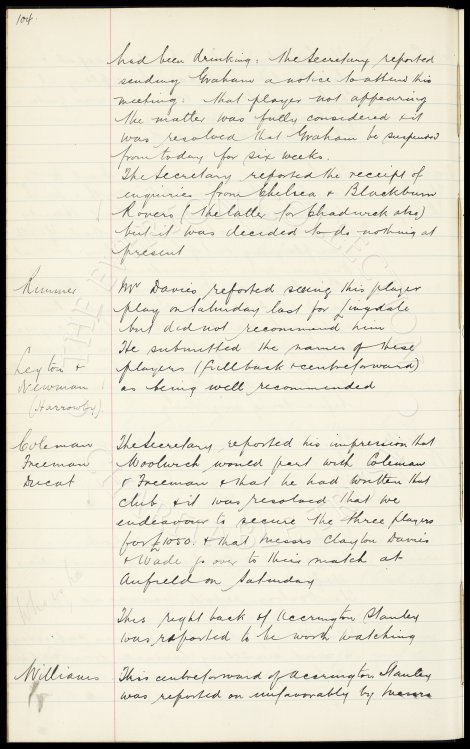 104
had been drinking: the Secretary reported
sending Graham a notice to attend this
meeting: that player not appearing
the matter was fully considered & it
was resolved that Graham be suspended
from today for six weeks.
The Secretary reported the receipt of
enquiries from Chelsea & Blackburn
Rovers (the latter for Chadwick also)
but it was decided to do nothing at
present
Rimmer
Mr Davies reported seeing this player
play on Saturday last for Lingdale
but did not recommend him
Leyton &
Newman
(Harrowby)
He submitted the names of these
players (full back & centreforward)
as being well recommended
Coleman
Freeman
Ducat
The Secretary reported his impression that
Woolwich would part with Coleman
& Freeman & that he had written that
club, & it was resolved that we
endeavour to secure the three players
for £1050. & that Messrs Clayton Davies
& Wade go over to this match at
Anfield on Saturday
This right back of Accrington Stanley
was reported to be worth watching
Williams
This centreforward of Accrington Stanley
was reported on unfavorably by Messrs